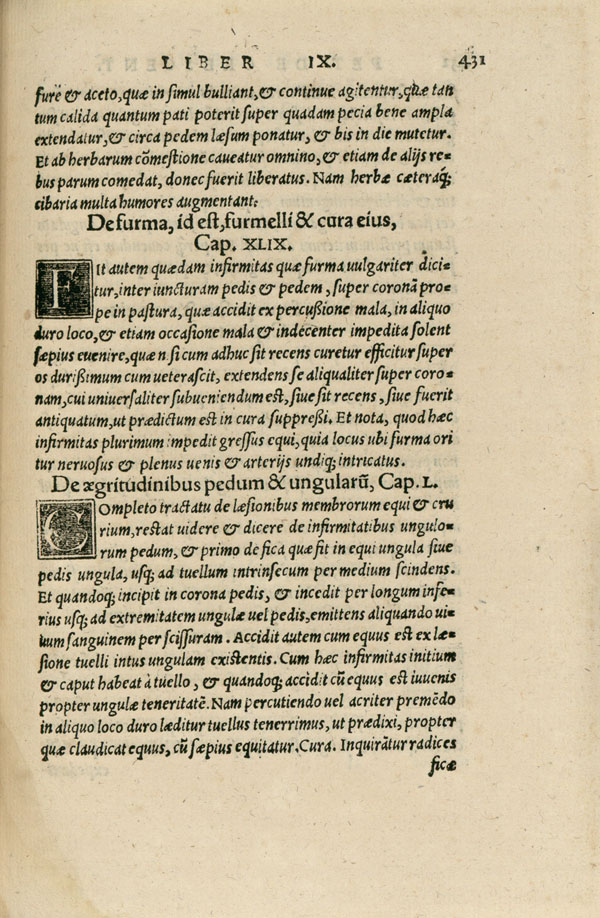 LIBER IX. 431
furẽ & aceto, quæ in simul bulliant, & continue agitentur, quæ tan
tum calida quantum pati poterit super quadam pecia bene ampla
extendatur, & circa pedem læsum ponatur, & bis in die mutetur.
Et ab herbarum cõmestione caueatur omnino, & etiam de alijs re-
bus parum comedat, donec fuerit liberatus. Nam herbæ cæteraq;
cibaria multa humores augmentant:
De furma, id est, furmelli & cura eius,
Cap. XLIX.
FIt autem quædam infirmitas quæ furma uulgariter dici-
tur, inter iuncturam pedis & pedem, super coronã pro-
pe in pastura, quæ accidit ex percußione mala, in aliquo
duro loco, & etiam occasione mala & indecenter impedita solent
sæpius euenire, quæ n si cum adhuc sit recens curetur efficitur super
os durißimum cum ueterascit, extendens se aliqualiter super coro-
nam, cui uniuersaliter subueniendum est, siue sit recens, siue fuerit
antiquatum, ut prædictum est in cura suppreßi. Et nota, quod hæc
infirmitas plurimum impedit gressus equi, quia locus ubi furma ori
tur neruosus & plenus uenis & arterijs undiq; intricatus.
De ægritudinibus pedum & ungularũ, Cap. L.
COmpleto tractatu de læsionibus membrorum equi & cru
rium, restat uidere & dicere de infirmitatibus ungulo-
rum pedum, & primo de fica quæ fit in equi ungula siue
pedis ungula, usq; ad tuellum intrinsecum per medium scindens.
Et quandoq; incipit in corona pedis, & incedit per longum infe-
rius usq; ad extremitatem ungulæ uel pedis, emittens aliquando ui-
uum sanguinem per scissuram. Accidit autem cum equus est ex læ-
sione tuelli intus ungulam existentis. Cum hæc infirmitas initium
& caput habeat à tuello, & quandoq; accidit cũ equus est iuuenis
propter ungulæ teneritatẽ. Nam percutiendo uel acriter premẽdo
in aliquo loco duro læditur tuellus tenerrimus, ut prædixi, propter
quæ claudicat equus, cũ sæpius equitatur. Cura. Inquirãtur radices
ficæ